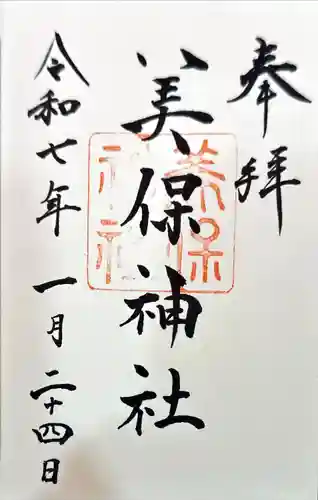 奉拝
美保神社
令和七年 一月 二十四日
美保
神社